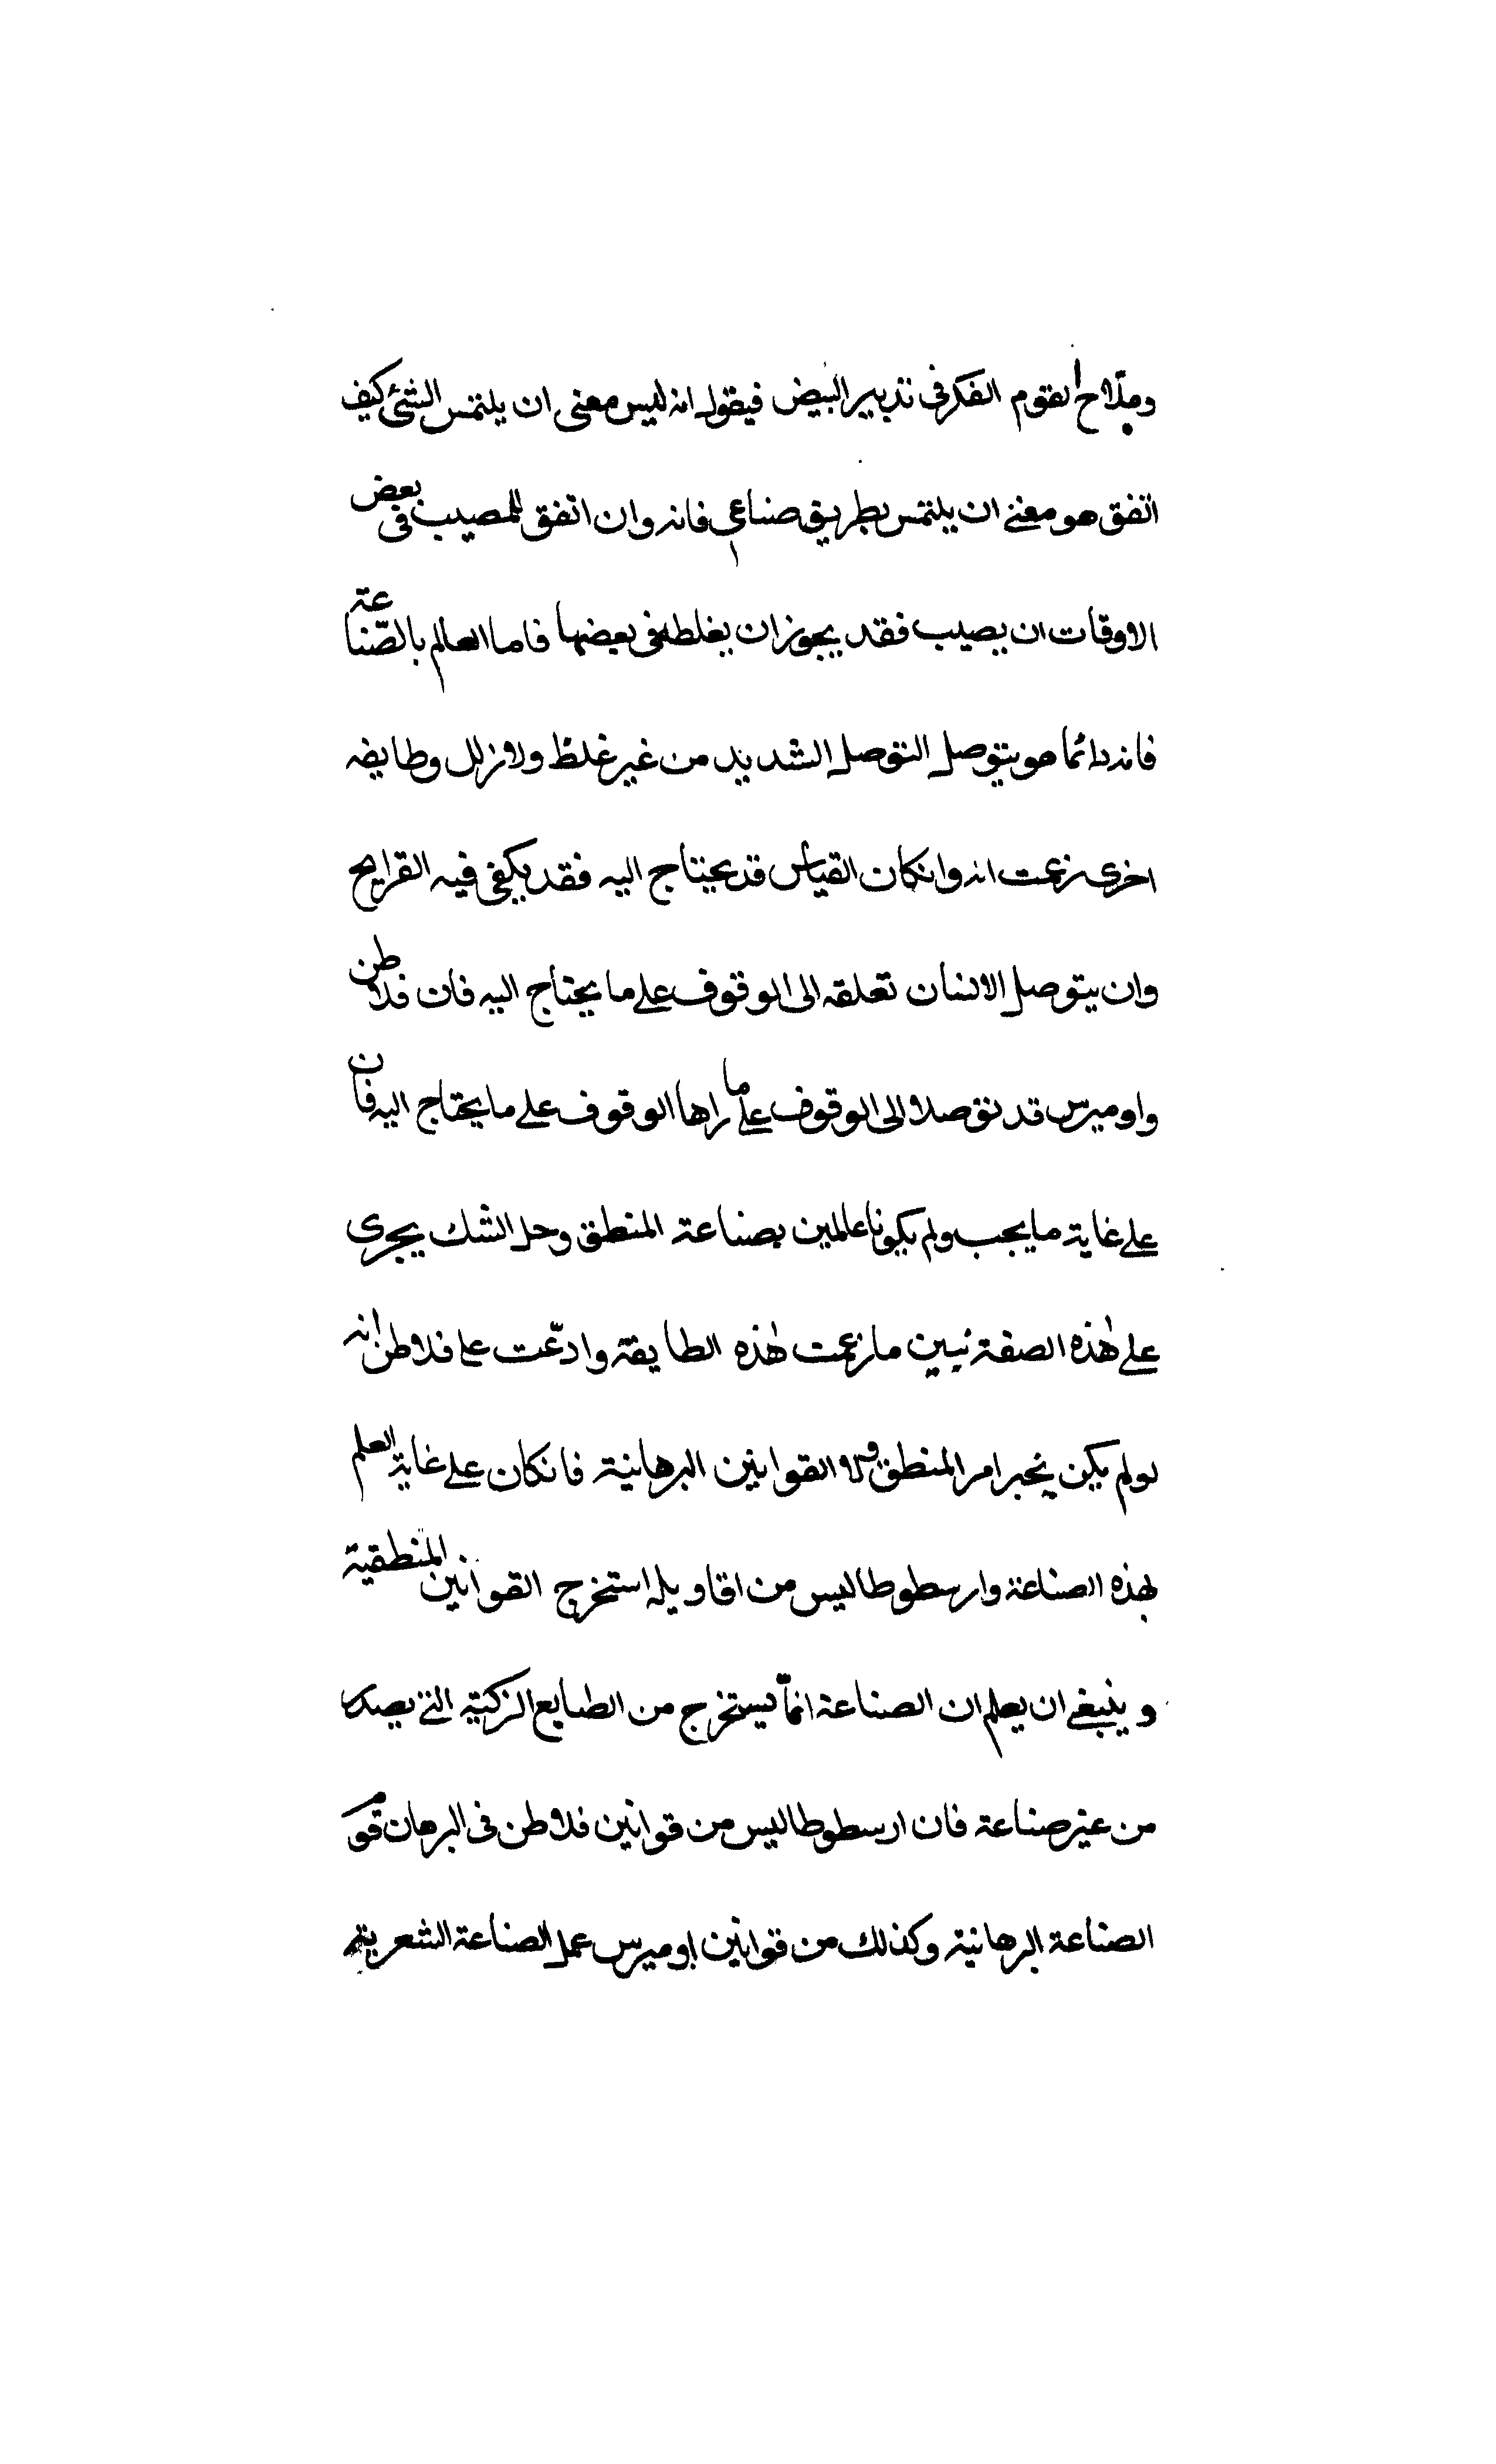 وملاح القوم الفكر فى تدبير البيض فيقول انه ليس معنى ان يلتمس الشئ كيف
اتفق هو معنے ان يلتمس بطريق صناعى فانه وان اتفق للمصيب فى بعض
الاوقات ان يصيب فقد يجوز ان يغلطه فى بعضها فاما العالم بالصّناعة
فانه دائما هو يتوصل التوصل الشديد من غير غلظ ولا زلل وطايفه
اخرى زعمت انه وانكان القياس قد يحتاج اليه فقد يكفى فيه القرايح
وان يتوصل الانسان تعلقه الى الوقوف على ما يحتاج اليه فان فلاطن
واوميرس قد توصلا الى الوقوف على ما راها الوقوف على ما يحتاج اليه فان
على غاية ما يجب ولم يكونا عالمين بصناعة المنطق وحل الشك يجرى
على هذه الصفة نبين ما زعمت هذه الطايقة وادّعت على فلاطن انه
لو لم يكن يخبر امر المنطق ولا القوانين البرهانية فانكان على غاية العلم
بهذه الصناعة وارسطوطاليس من اقاويله استخرج القوانين المنطقية
وينبغى ان يعلم ان الصناعة انمّا يستخرج من الطبايع الزكية التى يصدر
من غير صناعة فان ارسطوطاليس من قوانين فلاطن فى البرهان قوّم
الصناعة البرهانية وكذلك من قوانين اوميرس عمل الصناعة الشعرية